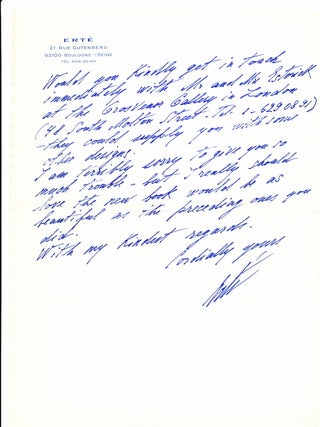 ERTÉ
21, RUE GUTENBERG
92100 BOULOGNE - SEINE
Would you kindly get in touch
immediately with Mr and Mrs Estorick
at the Grosvenor Gallery in London
(48 South Molton Street. Tel. 1-629 08 91)
- they could supply you with some
other designs.
I am terribly sorry to give you so
much trouble - but I really should
love the new book would be as
beautiful as the preceding ones you
did.
With my kindest regards.
Cordially yours
Erté